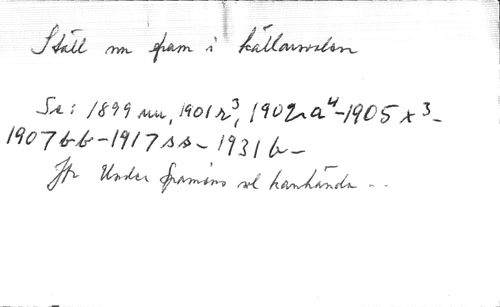 Ställ nu fram i källarsvalen
Se: 1899 uu, 1901 r³, 1902 a⁴-1905 x³-
1907 bb-1917 ss-1931 b-
Jfr Under framöns vel kanhända ..